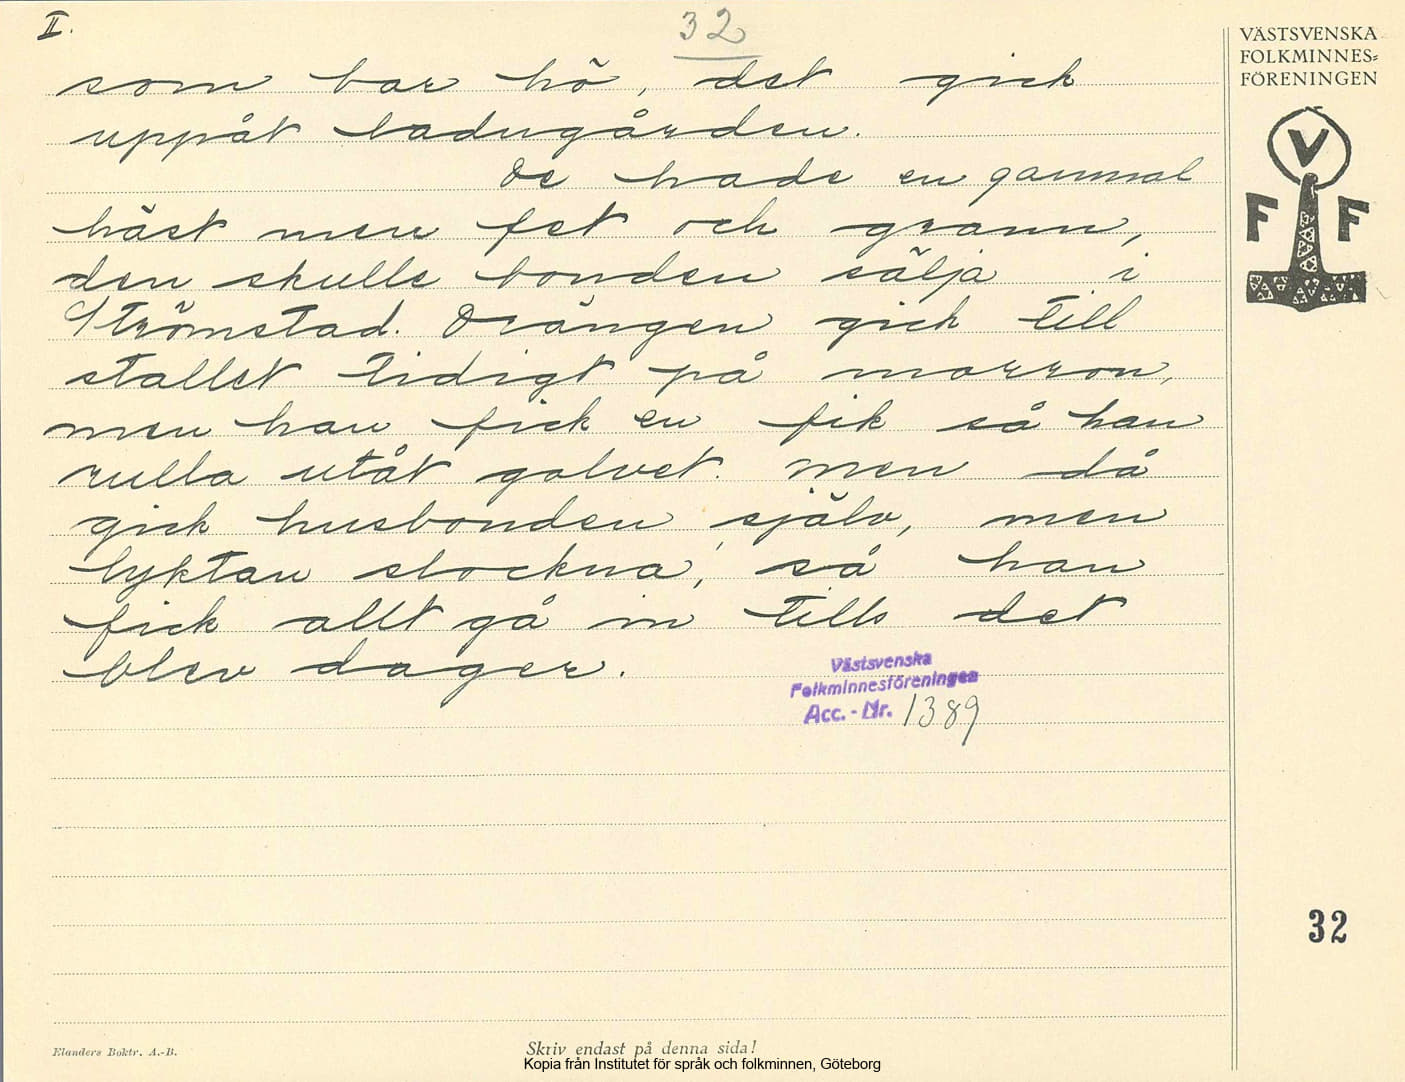 II.
32
som bar hö, det gick
uppåt ladugården.
De hade en gammal
häst men fet och grann,
den skulle bonden sälja i
Strömstad. Drängen gick till
stallet tidigt på morron,
men han fick en fik så han
rulla utåt golvet. Men då
gick husbonden själv, men
lyktan slockna, så han
fick allt gå in tills det
blev dager.
Västsvenska
Folkminnesföreningen
Acc. - Nr. 1389
VÄSTSVENSKA
FOLKMINNES=
FÖRENINGEN
V
F F
32
Elanders Boktr. A.-B.
Skriv endast på denna sida!
Kopia från Institutet för språk och folkminnen, Göteborg